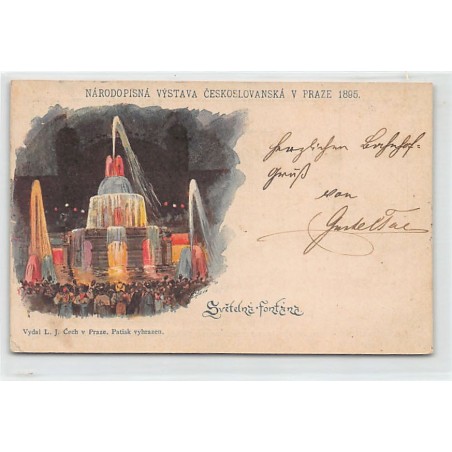 NÁRODOPISNÁ VÝSTAVA ČESKOSLOVANSKÁ V PRAZE 1895.
herzlichen Bahnhof-
gruß
von
Světelná fontána
Vydal L. J. Čech v Praze. Patisk vyhrazen.